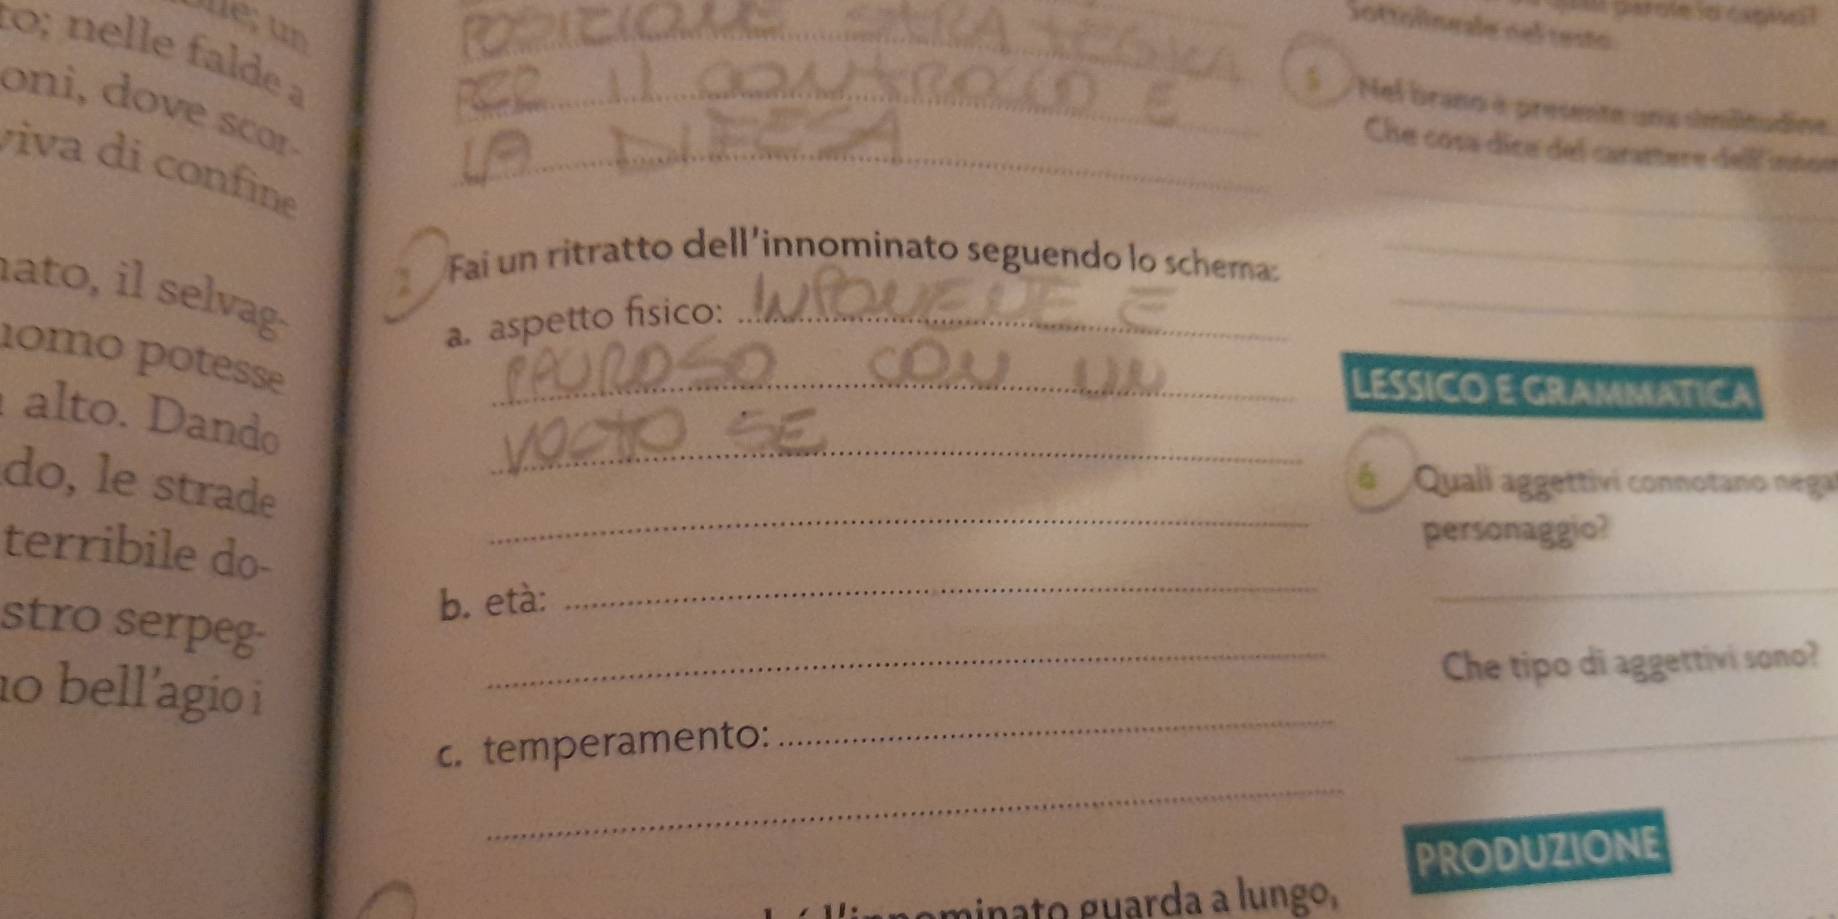 to; nelle falde a
oni, dove scor-
viva di confine
nato, il selvag-
uomo potesse
alto. Dando
do, le strade
terribile do-
stro serpeg-
no bell'agio i
POSIZIONE STRATEGICA
PER IL CONTROLLO E
LA DIFESA
Fai un ritratto dell'innominato seguendo lo schema:
a. aspetto fisico: IMPONENTE E
PAUROSO CON UN
VOLTO SE
b. età:
c. temperamento:
l'innominato guarda a lungo,
Sottolineale nel testo.
5 Nel brano è presente una similitudine.
Che cosa dice del carattere dell'
LESSICO E GRAMMATICA
6 Quali aggettivi connotano nega
personaggio?
Che tipo di aggettivi sono?
PRODUZIONE